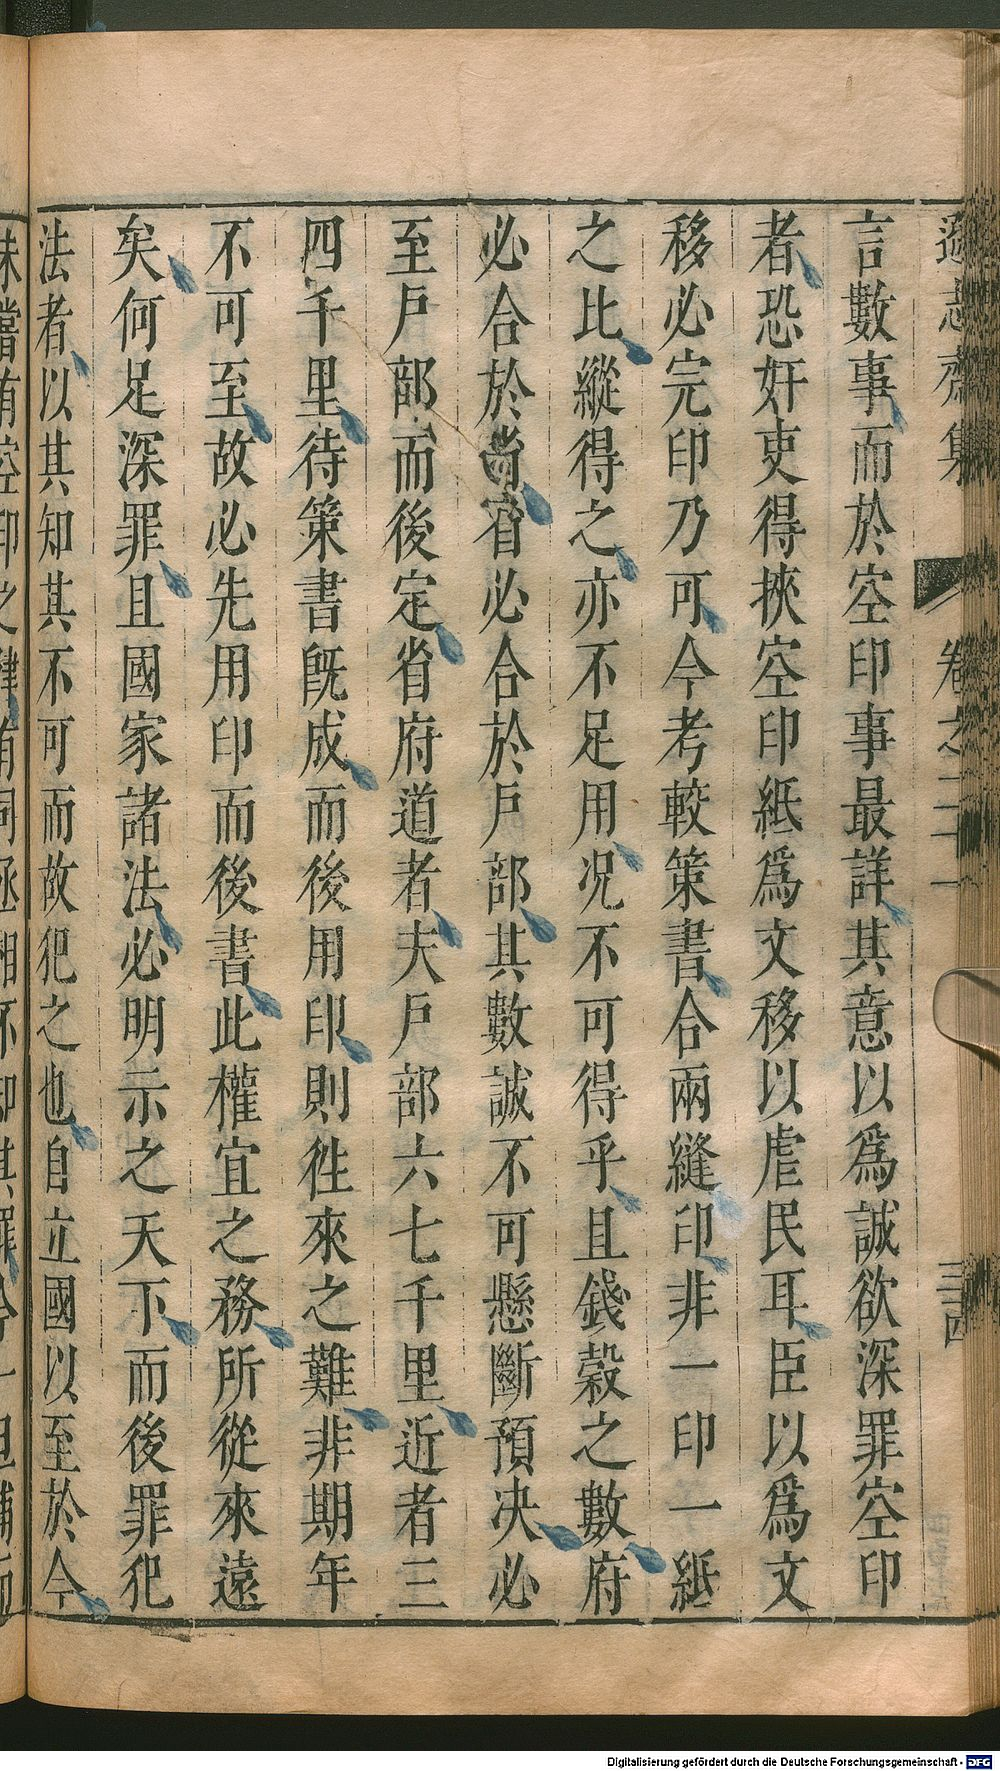 言數事而於空印事最詳其意以爲誠欲深罪空印
者恐奸吏得挾空印紙爲文移以虐民耳臣以爲文
移必完印乃可今考較策書合兩縫印非一印一紙
之比縱得之亦不足用况不可得乎且錢穀之數府
必合於省必合於戶部其數誠不可懸斷預决必
至戶部而後定省府道者夫戶部六七千里近者三
四千里待策書旣成而後用印則徃來之難非期年
不可至故必先用印而後書此權宜之務所從來遠
矣何足深罪且國家諸法必明示之天下而後罪犯
法者以其知其不可而故犯之也自立國以至於今
Digitalisierung gefördert durch die Deutsche Forschungsgemeinschaft - DFG